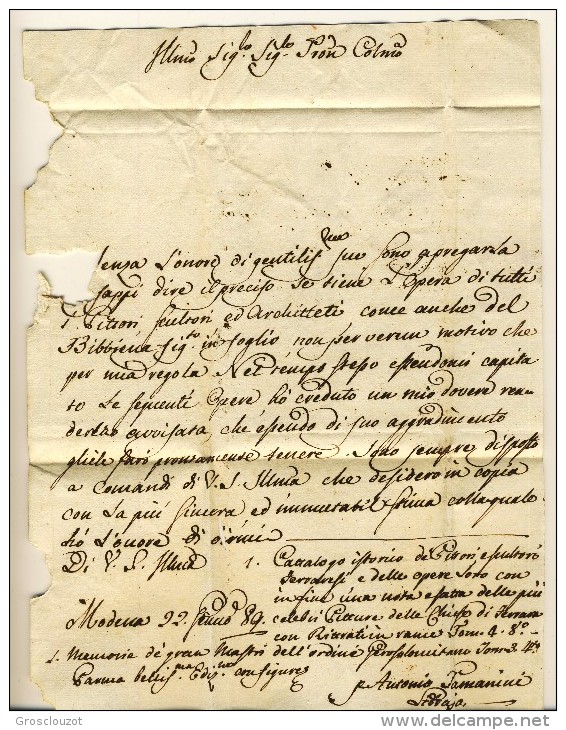 Illmo Sigr. Sigr. Pron Colmo
Senza l'onore di gentilis sue sono a pregarla
sappi dire il preciso se tiene l'Opera di tutti
i Pittori scultori ed Architteti come anche del
Bibbiena figto in foglio non per verun motivo che
per mia regola Nel tempo stesso essendomi capita
to le seguenti Opere hò creduto un mio dovere ren=
derla avvisata, che essendo di suo aggradimento
gliele farò prontamente tenere. Sono sempre disposto
a comandi di V. S. Illma che desidero in copia
con la più sincera ed immutabil stima colla quale
hò l'onore di
Di V. S. Illma
1. Cattalogo istorico de Pittori e scultori
Ferraresi e delle opere loro con
in fine una nota esatta delle più
celebri Pitture delle Chiese di Ferrara
con Ritratti in rame Tom. 4. 8o.
Modena 22. Genno 89.
1. Memorie de gran Mastri dell'ordine Gerosolimitano Tom. 3. 4o.
Parma belliss.ma Ediz.ne con figure
Antonio Tamanini
Librajo
Grosclouzot
delcampe.net